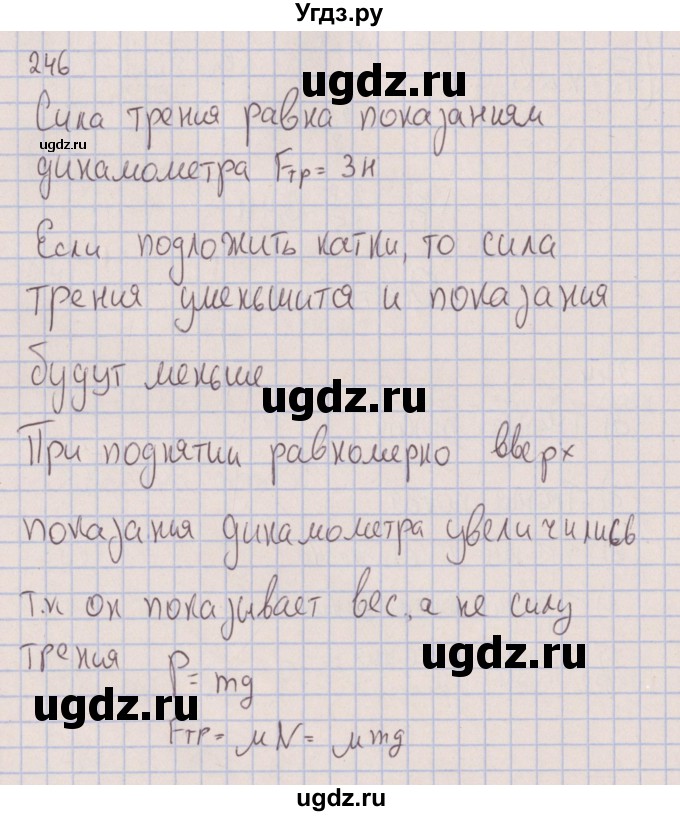 Угдз.ру
246
ugdz.ru
Сила трения равна показаниям
ugdz.ru
динамометра Fтр = 3н
Если подложить катки, то сила
трения уменьшится и показания
будут меньше
ugdz.ru
При поднятии равномерно вверх
показания динамометра увеличились
т.к он показывает вес, а не силу
трения P = mg
ugdz.ru
ugdz.ru
Fтр = μN = μmg
ugdz.ru